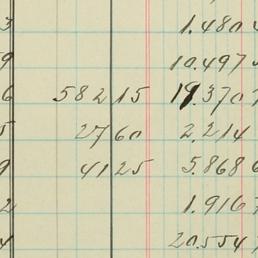 3 1.480
9 10.497
6 582 15 19.370
5 27 60 2.214
9 41 25 5.868
2 1.916
4 20.554